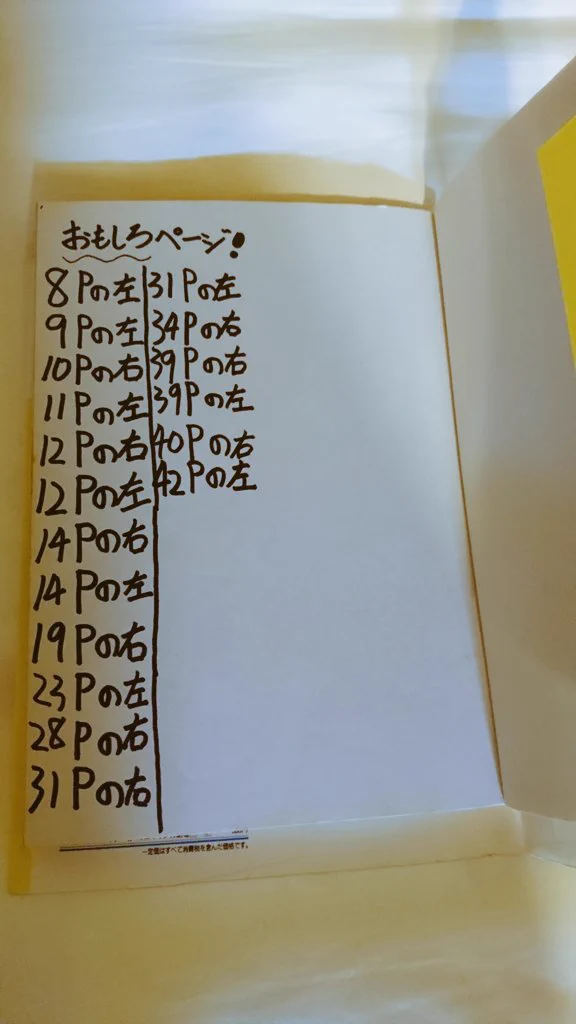 おもしろページ!
8Pの左
9Pの左
10Pの右
11Pの左
12Pの右
12Pの左
14Pの右
14Pの左
19Pの右
23Pの左
28Pの右
31Pの右
31Pの左
34Pの右
39Pの右
39Pの左
40Pの右
42Pの左
一定価はすべて消費税を含んだ価格です。